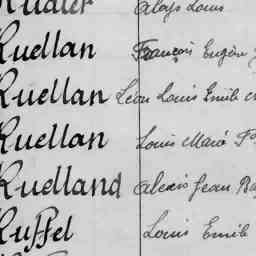 Aloys Louis
Ruellan François Eugène
Ruellan Léon Louis Emile
Ruellan Louis Marie
Ruelland Alexis Jean
Ruffel Louis Emile